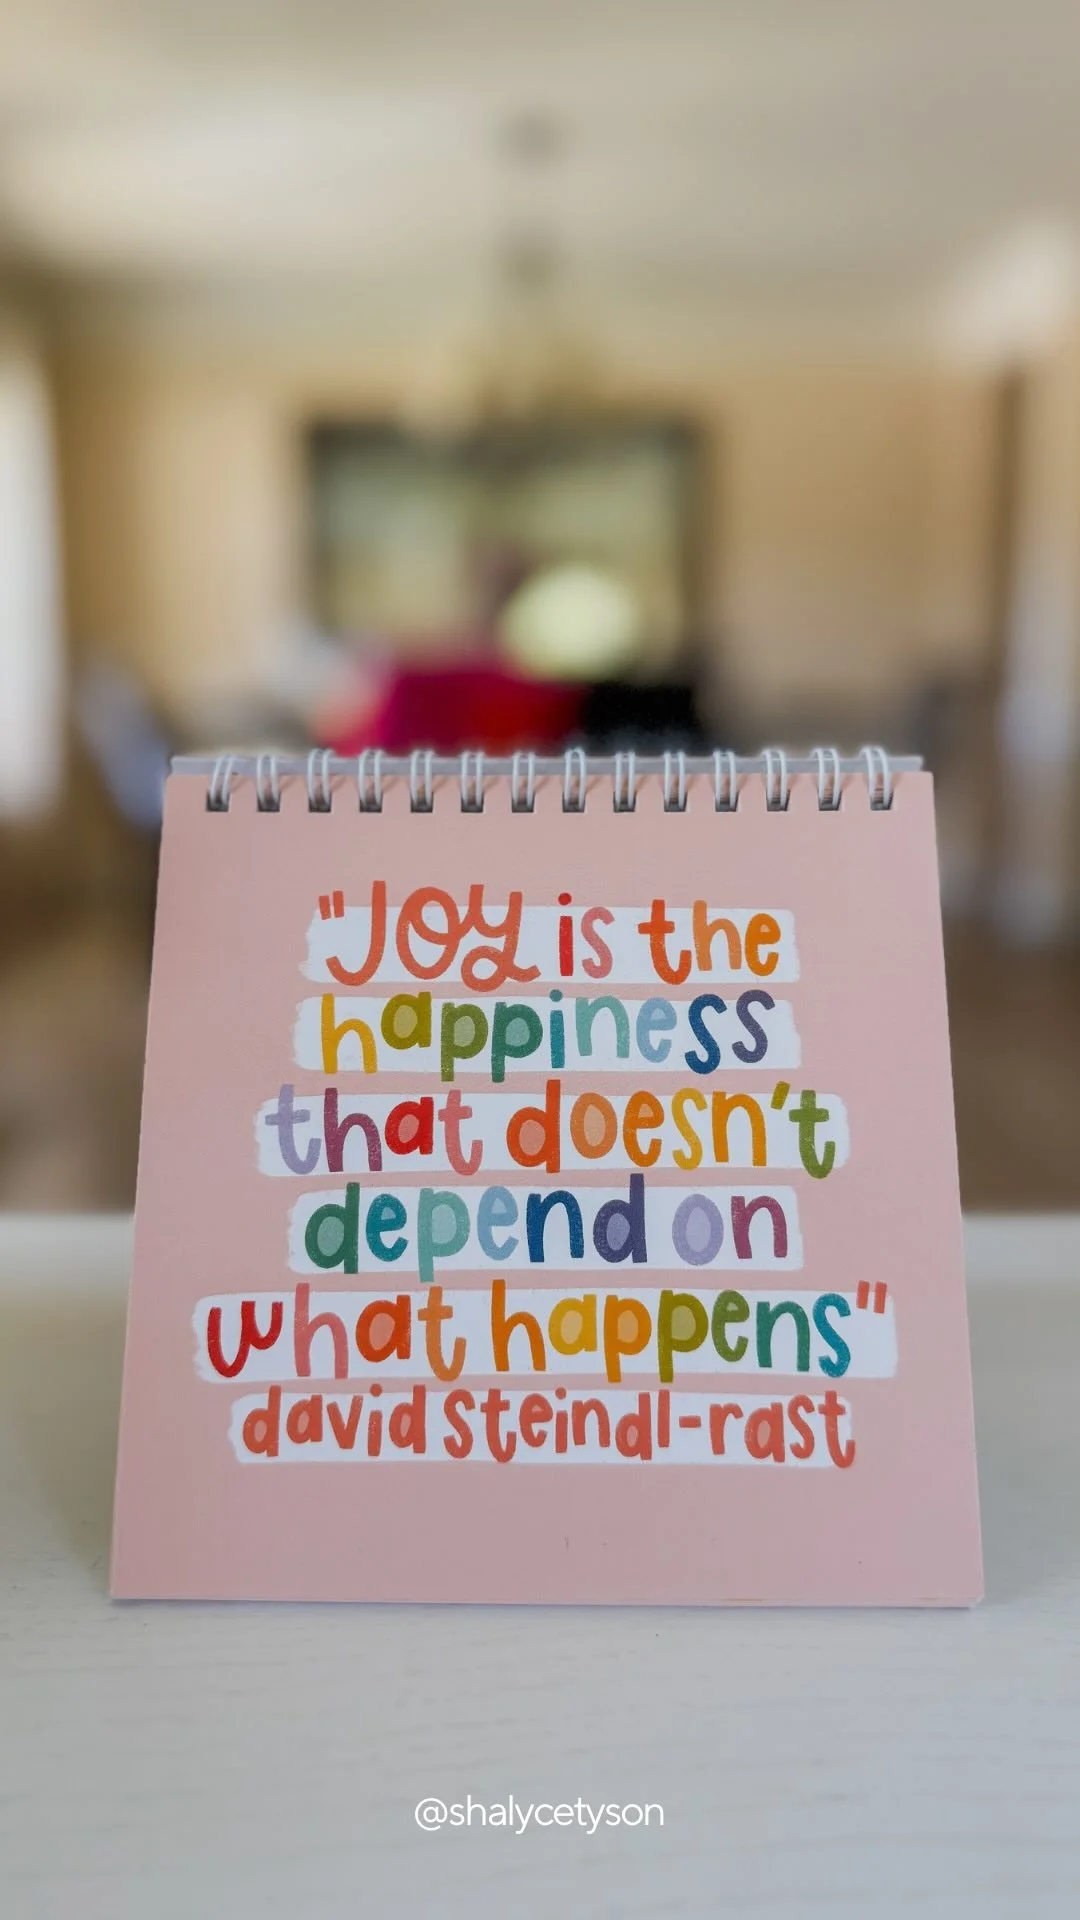 "Joy is the
happiness
that doesn't
depend on
what happens"
david steindl-rast
@shalycetyson